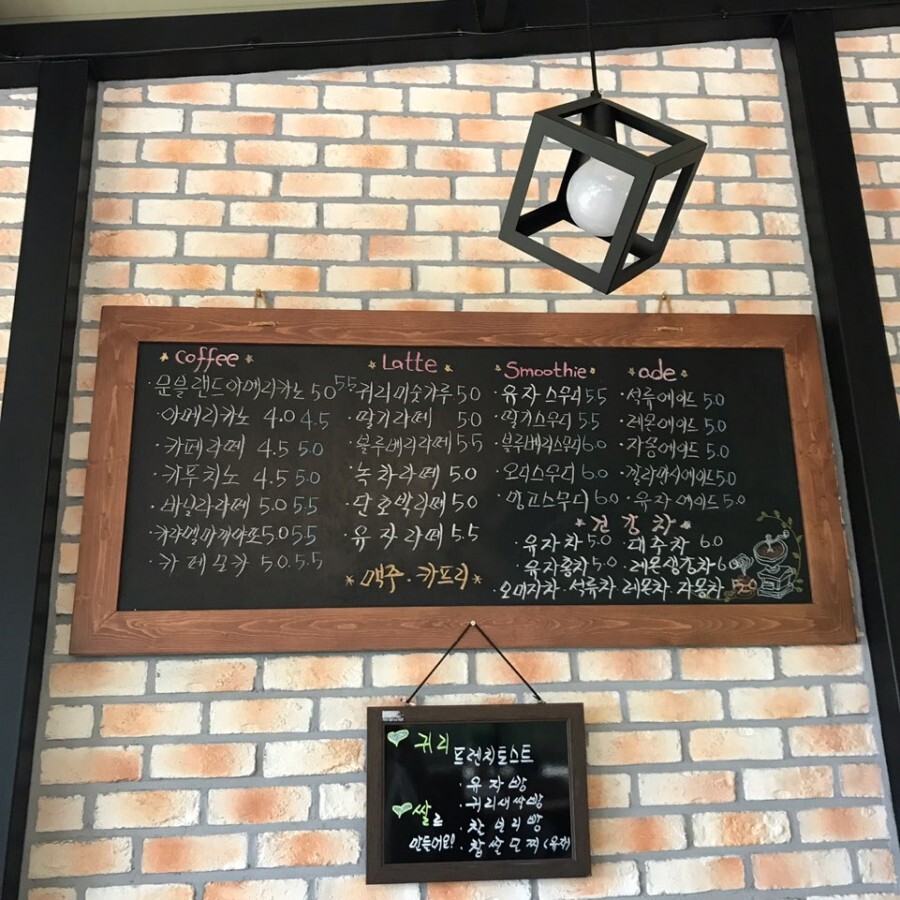 Coffee
· 문블랜드아메리카노 5.0 5.5
· 아메리카노 4.0 4.5
· 카페라떼 4.5 5.0
· 카푸치노 4.5 5.0
· 바닐라라떼 5.0 5.5
· 카라멜마끼아또 5.0 5.5
· 카페모카 5.0 5.5
Latte
· 귀리미숫가루 5.0
· 딸기라떼 5.0
· 블루베리라떼 5.5
· 녹차라떼 5.0
· 단호박라떼 5.0
· 유자라떼 5.5
맥주 · 카프리
Smoothie
· 유자스무디 5.5
· 딸기스무디 5.5
· 블루베리스무디 6.0
· 오디스무디 6.0
· 망고스무디 6.0
ade
· 석류에이드 5.0
· 레몬에이드 5.0
· 자몽에이드 5.0
· 깔라만시에이드 5.0
· 유자에이드 5.0
건강차
· 유자차 5.0 · 대추차 6.0
· 유자홍차 5.0 · 레몬생강차 6.0
오미자차 · 석류차 · 레몬차 · 자몽차 5.0
귀리 프렌치토스트
· 유자빵
· 귀리새싹빵
쌀로 · 찰보리빵
만들어요! · 찹쌀모찌 (유자)